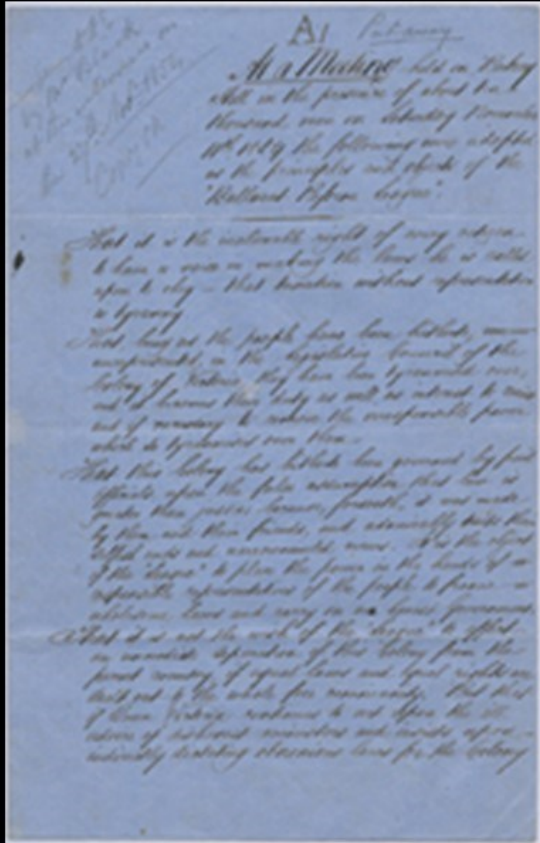 A1
At a Meeting held on Bakery
Hill in the presence of about ten
thousand men on Saturday November
11th 1854 the following were adopted
as the principles and objects of the
"Ballaarat Reform League".
That it is the inalienable right of every citizen
to have a voice in making the laws he is called
upon to obey – that taxation without representation
is tyranny
That being as the people have been hitherto, un-
represented in the Legislative Council of the
Colony of Victoria, they have been tyrannised over,
and it becomes their duty as well as interest to resist
and if necessary to remove the irresponsible power
which so tyrannises over them –
That this Colony has hitherto been governed by paid
officials, upon the false assumption that law is
greater than justice because, forsooth, it was made
by them and their friends, and admirably suits their
selfish ends and narrow minded views. It is the object
of the "League" to place the power in the hands of
responsible representatives of the people to frame
wholesome laws and carry on an honest Government
That it is not the wish of the "League" to effect
an immediate separation of this Colony from the
parent country, if equal laws and equal rights are
dealt out to the whole free community. But that
if Queen Victoria continues to act upon the ill
advice of dishonest ministers and insists upon
indirectly dictating obnoxious laws for the Colony